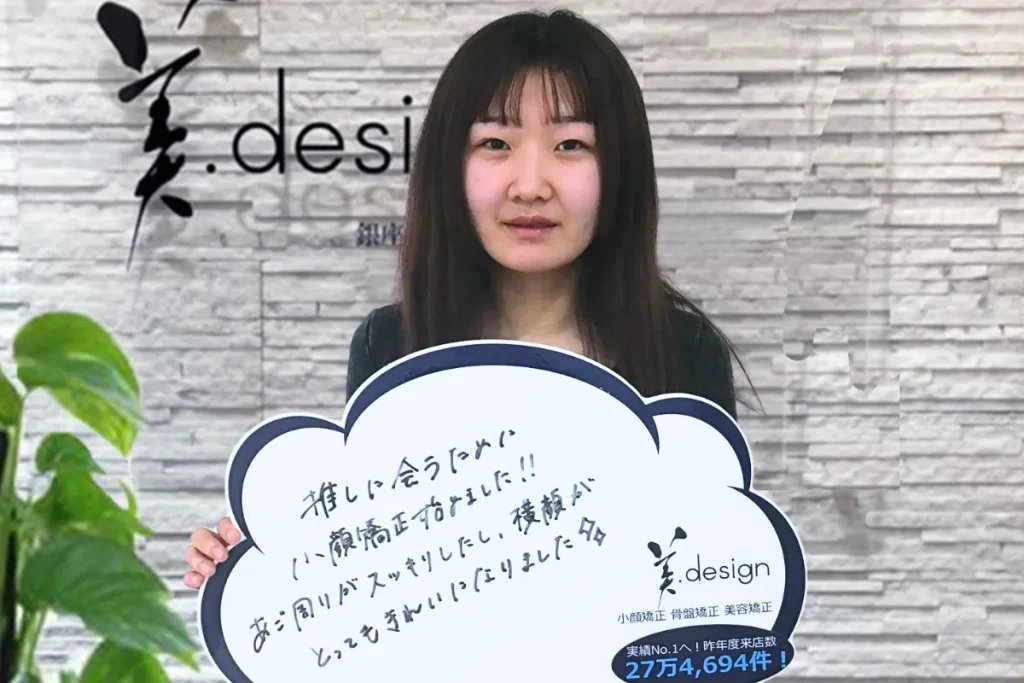 美.desi
銀座
推しに会うために
小顔矯正始めました!!
あご周りがスッキリしたし、横顔が
とってもきれいになりました
美.design
小顔矯正 骨盤矯正 美容矯正
実績No.1へ!昨年度来店数
27万4,694件!